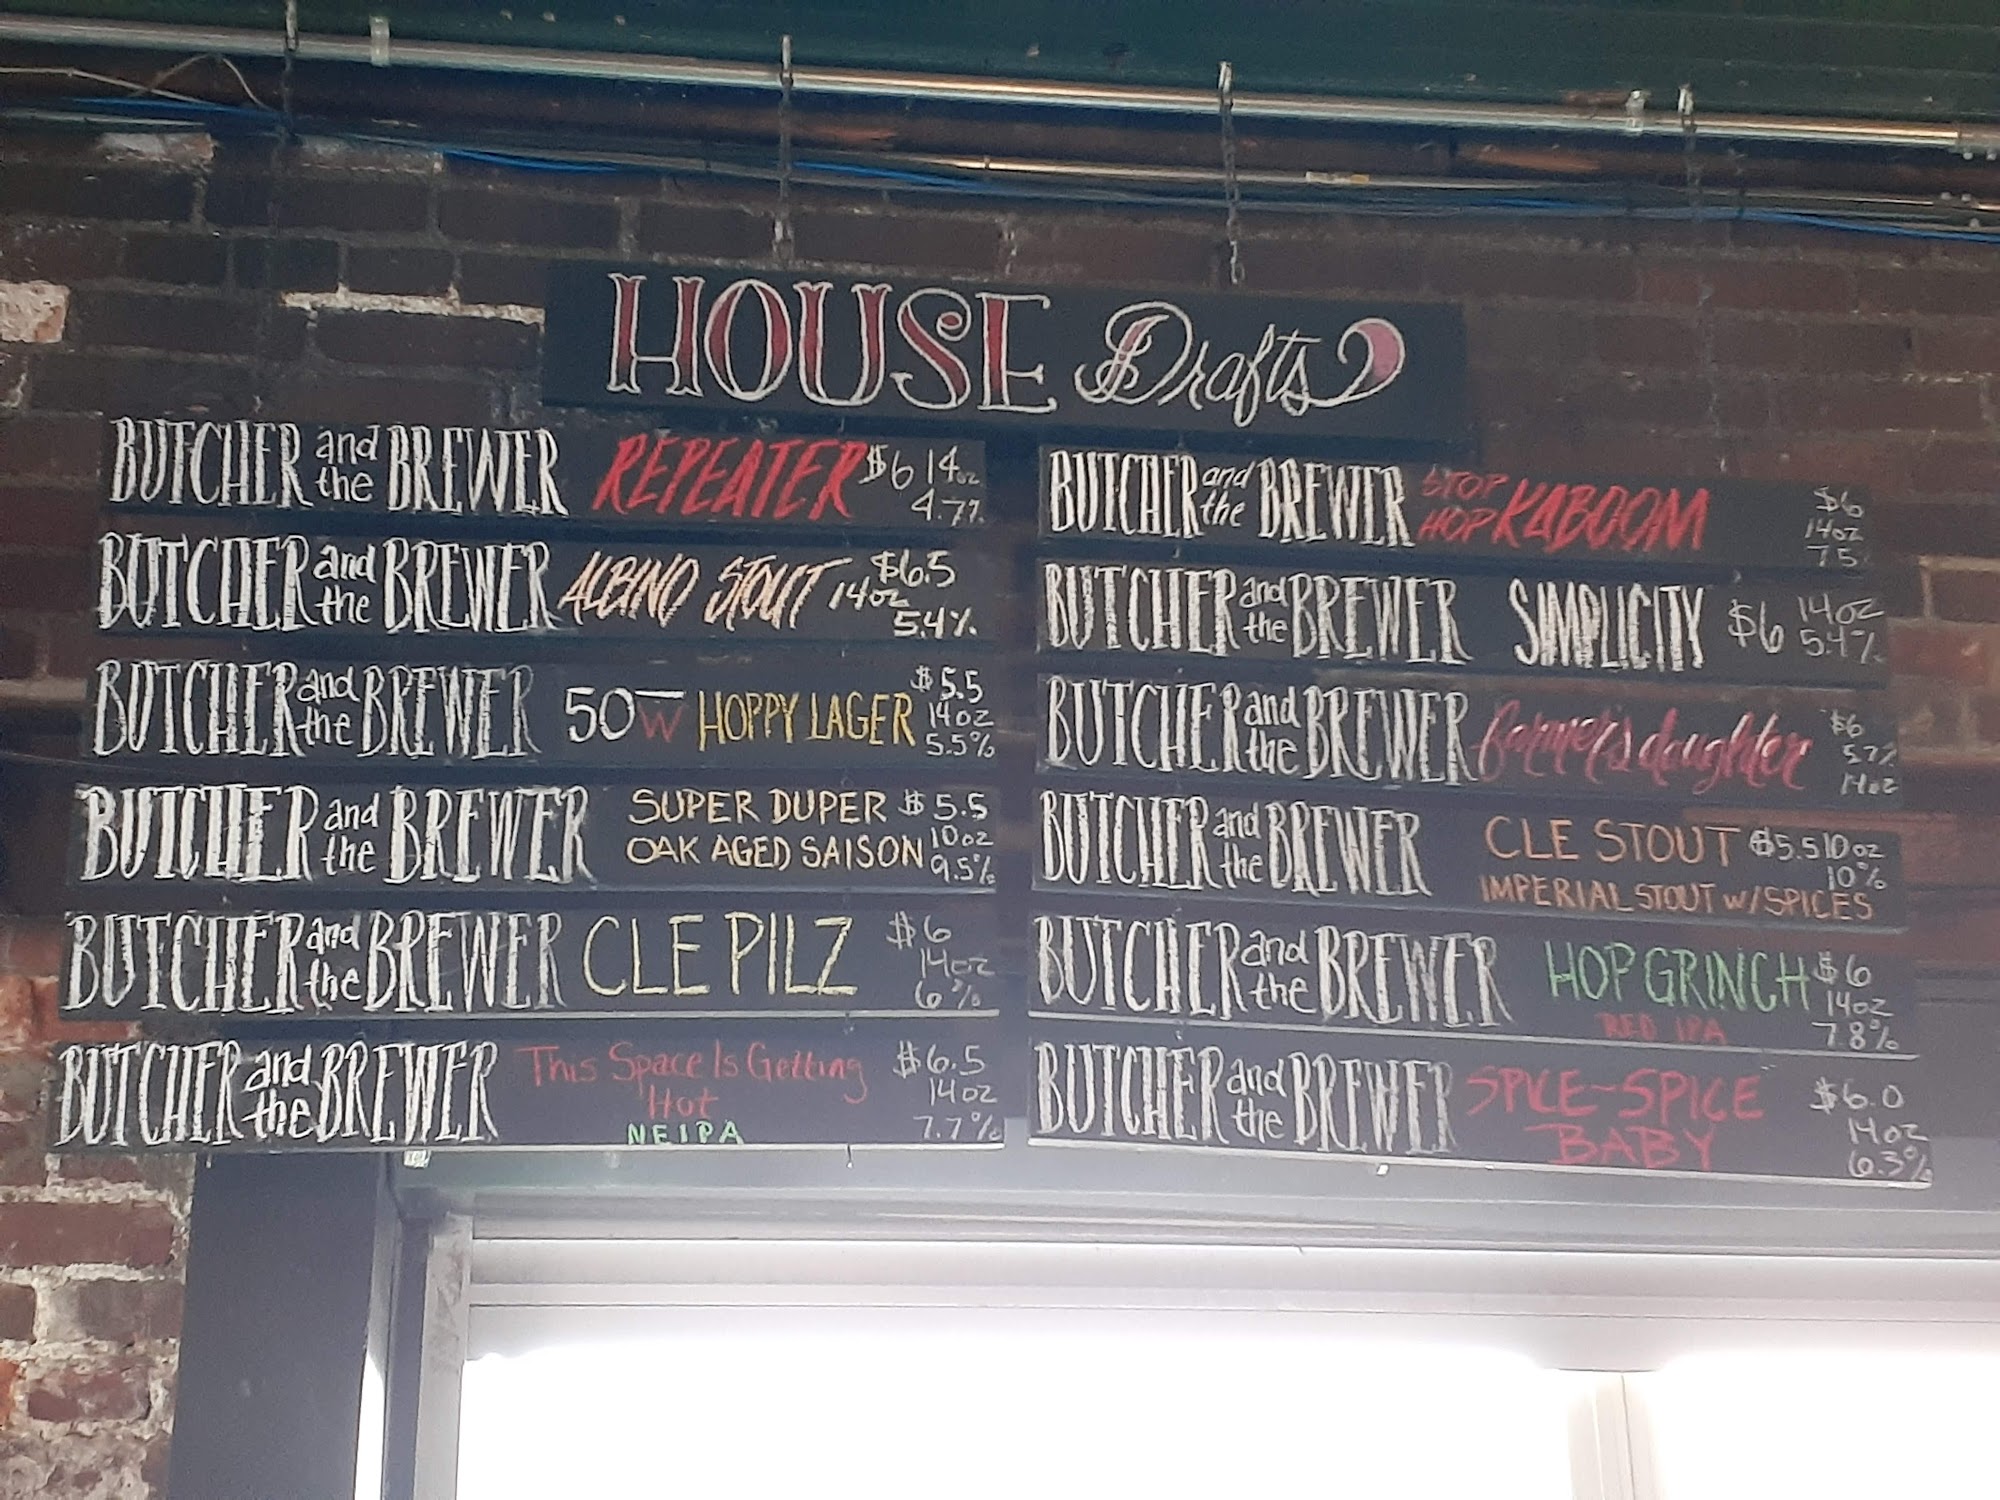 HOUSE Drafts
BUTCHER and the BREWER REPEATER $6 14oz
4.7%
BUTCHER and the BREWER ALBINO STOUT $6.5
14oz
5.4%
BUTCHER and the BREWER 50W HOPPY LAGER $5.5
14oz
5.5%
BUTCHER and the BREWER SUPER DUPER $5.5
OAK AGED SAISON 10oz
9.5%
BUTCHER and the BREWER CLE PILZ $6
14oz
6%
BUTCHER and the BREWER This Space Is Getting $6.5
Hot 14oz
NEIPA 7.7%
BUTCHER and the BREWER STOP HOP KABOOM $6
14oz
7.5
BUTCHER and the BREWER SIMPLICITY $6 14oz
5.4%
BUTCHER and the BREWER farmer's daughter $6
5.7%
14oz
BUTCHER and the BREWER CLE STOUT $5.5 10oz
10%
IMPERIAL STOUT w/SPICES
BUTCHER and the BREWER HOP GRINCH $6
14oz
RED IPA 7.8%
BUTCHER and the BREWER SPICE-SPICE $6.0
BABY 14oz
6.3%